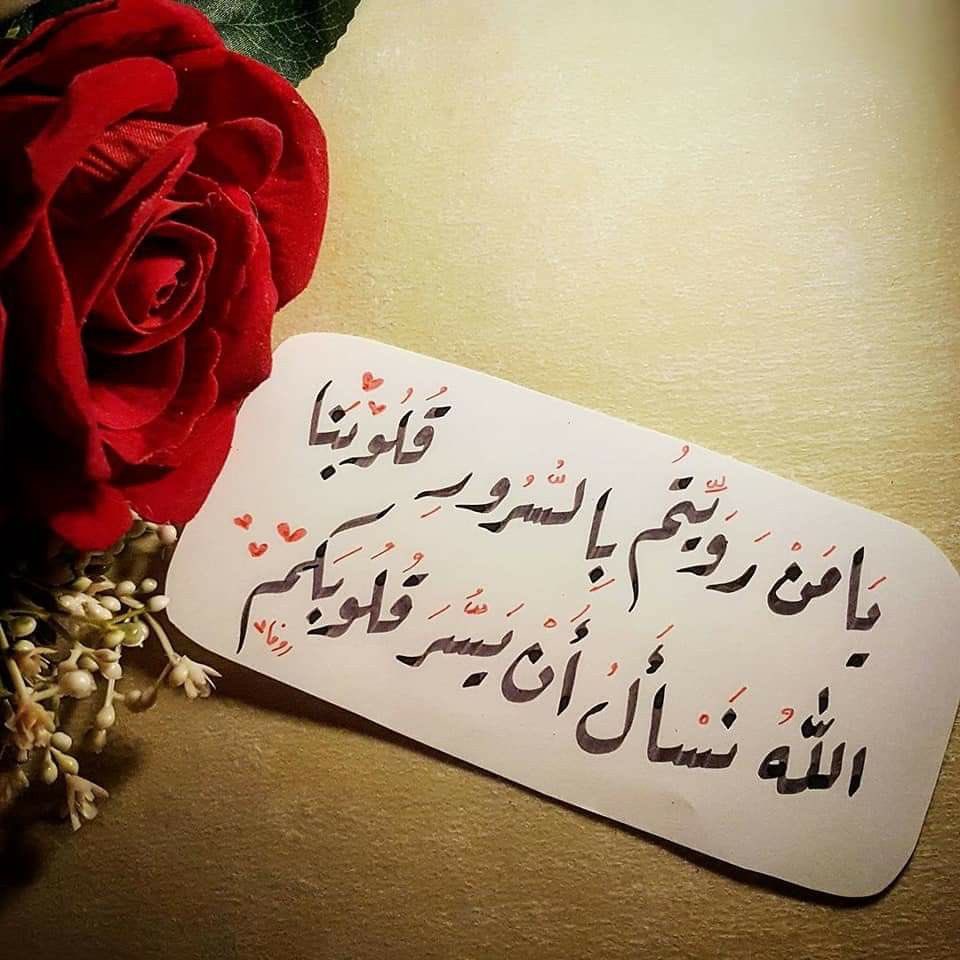 يَا مَنْ رَوَيْتُم بِالسُّرُورِ قُلُوبَنَا
اللهُ نَسْأَلُ أَنْ يَسُرَّ قُلُوبَكُم
روفا